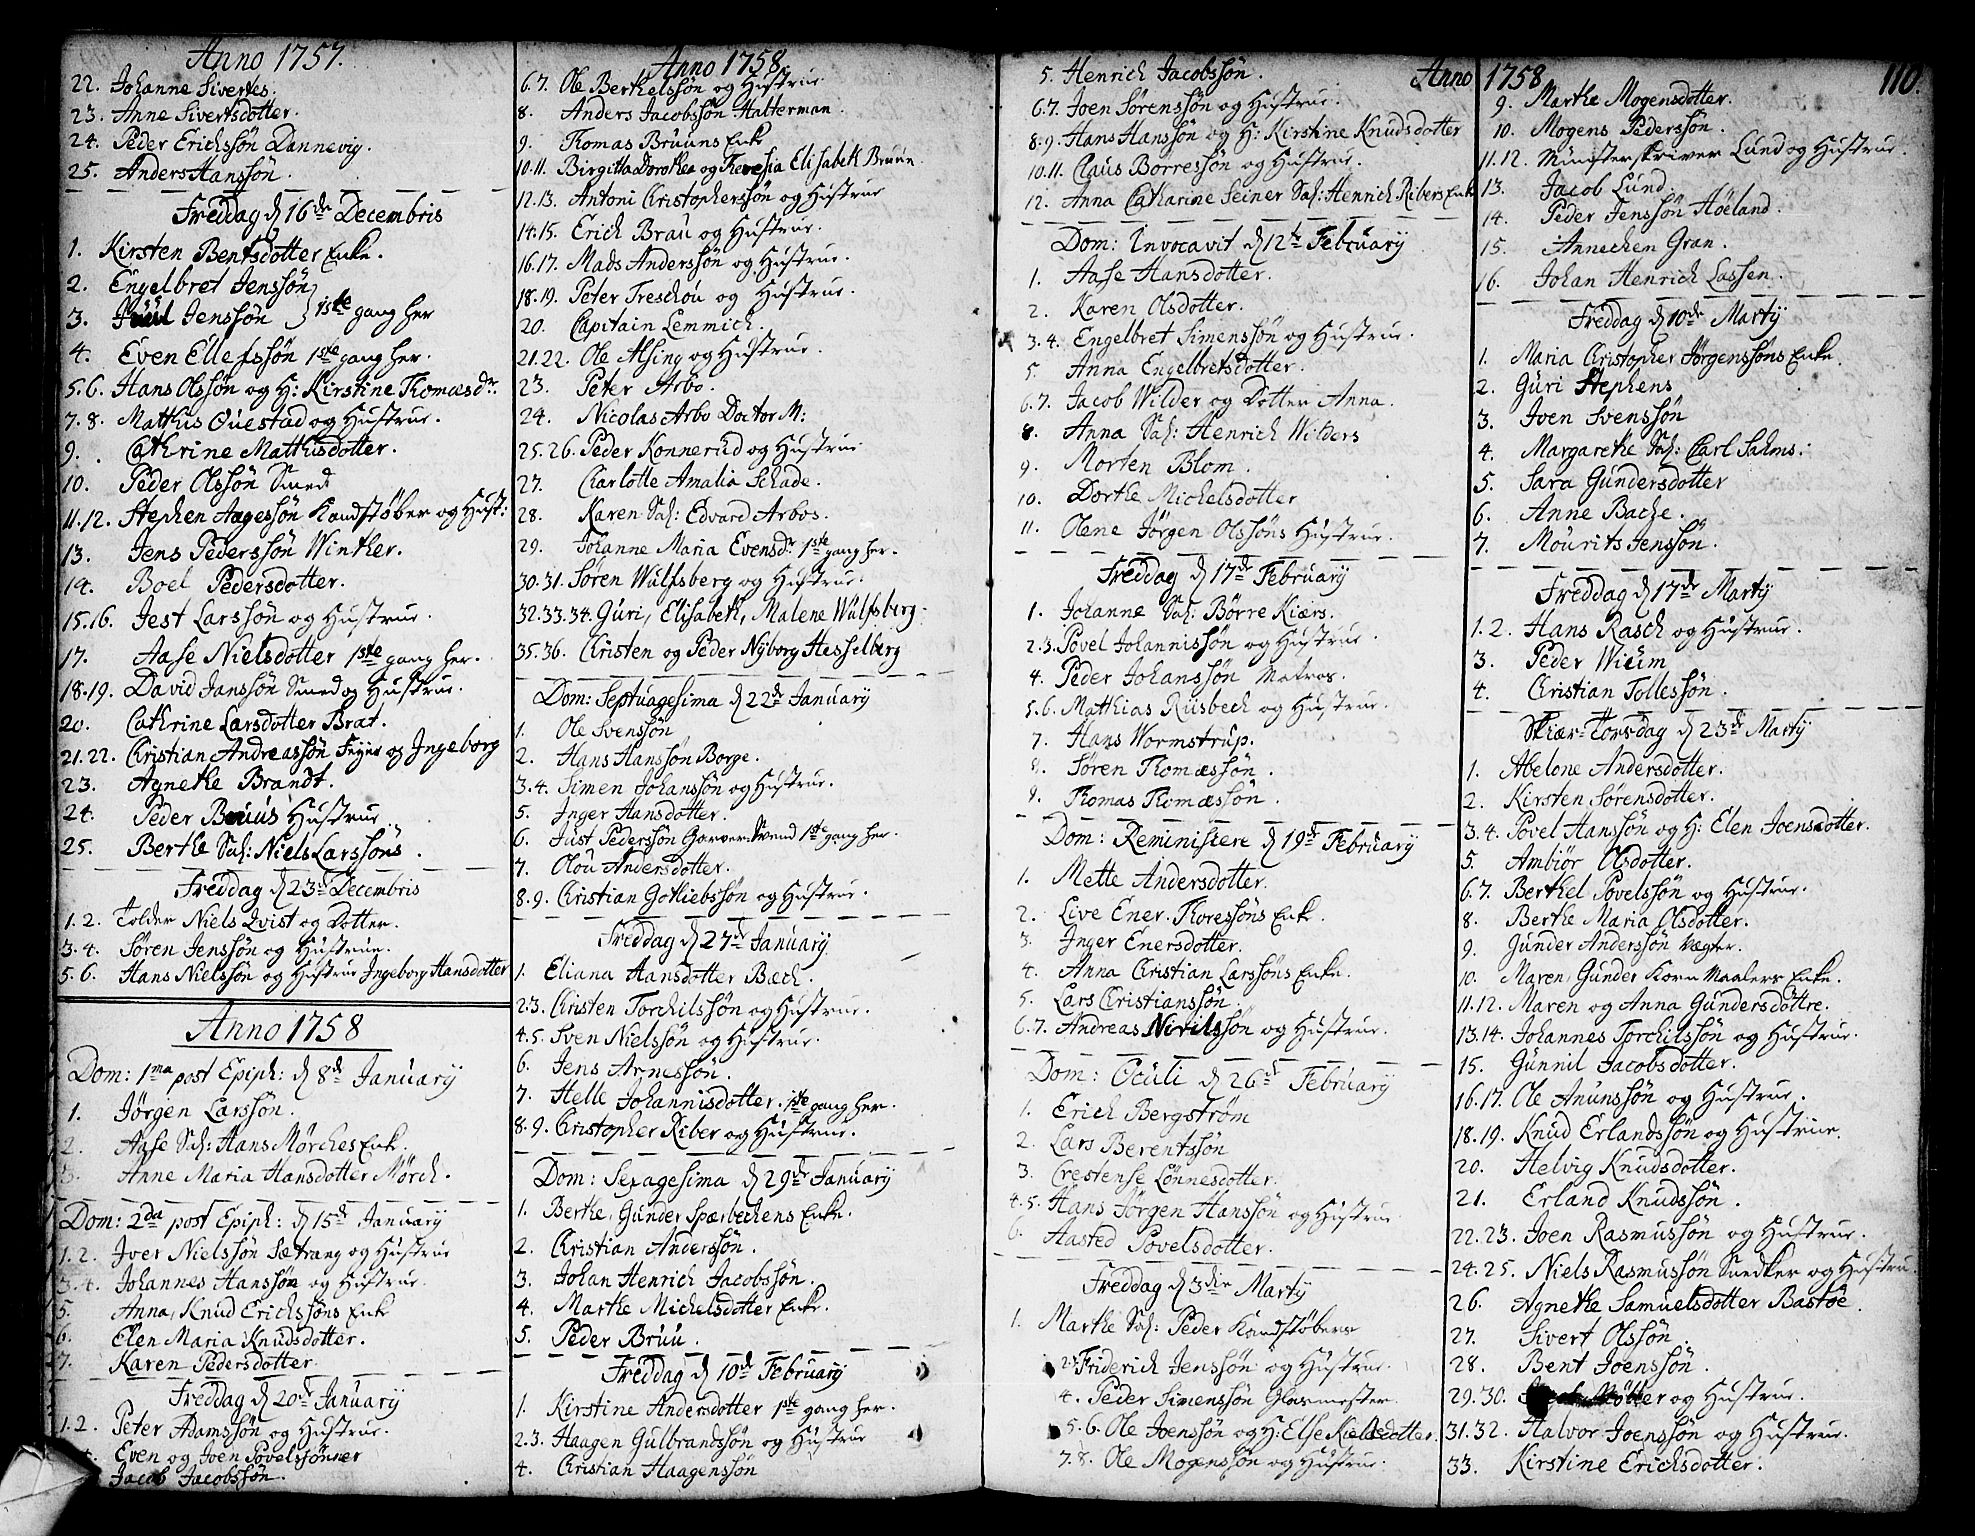 Anno 1757.
22. Johanne Siverts.
23. Anne Sivertsdotter.
24. Peder Erichssön Dannevig.
25. Anders Hanssön.
Freddag d 16de Decembris
1. Kirsten Bentsdotter Enke.
2. Engelbret Jenssön
3. Juul Jenssön } 1ste gang her
4. Even Ellefssön 1ste gang her.
5.6. Hans Olssön og H: Kirstine Thomæsdr.
7.8. Mathis Questad og Hustrue.
9. Cathrine Mathisdotter.
10. Peder Olssön Smed
11.12. Stephen Aagessön Kandstøber og Hust:
13. Jens Pederssön Winther.
14. Boel Pedersdotter.
15.16. Jest Larssön og Hustrue.
17. Aase Nielsdotter 1ste gang her.
18.19. David Janssön Smed og Hustrue.
20. Cathrine Larsdotter Brat.
21.22. Christian Andreassön Feyer og Ingeborg
23. Agnethe Brandt.
24. Peder Bruus Hustrue
25. Berthe Sal: Niels Larssöns.
Freddag d 23de Decembris
1.2. Tolder Niels Qvist og Dotter.
3.4. Søren Jenssön og Hustrue.
5.6. Hans Nielssön og Hustrue Ingeborg Hansdotter
Anno 1758
Dom: 1ma post Epiph: d 8de January
1. Jörgen Larssön.
2. Aase Sal: Hans Mörches Enke.
3. Anne Maria Hansdotter Mörch.
Dom: 2da post Epiph: d 15de January
1.2. Iver Nielssön Sætrang og Hustrue
3.4. Johannes Hanssön og Hustrue.
5. Anna, Knud Erichssöns Enke
6. Elen Maria Knudsdotter.
7. Karen Pedersdotter
Freddag d 20de January
1.2. Peter Adamssön og Hustrue.
Even og Joen Povelssönner
Jacob Jacobssön.
Anno 1758.
6.7. Ole Berthelssön og Hustrue
8. Anders Jacobssön Halterman.
9. Thomas Bruuns Enke
10.11. Birgitta Dorothea og Theresia Elisabeth Bruun.
12.13. Antoni Christopherssön og Hustrue
14.15. Erich Brau og Hustrue.
16.17. Mads Anderssön og Hustrue.
18.19. Peter Treschou og Hustrue.
20. Capitain Lemmich.
21.22. Ole Alsing og Hustrue.
23. Peter Arbo.
24. Nicolas Arbo Doctor M:
25.26. Peder Konnerud og Hustrue
27. Charlotte Amalia Schade.
28. Karen Sal: Edvard Arbos.
29. Johanne Maria Evensdr. 1ste gang her.
30.31. Søren Wulfsberg og Hustrue.
32.33.34. Guri, Elisabeth, Malene Wulfsberg.
35.36. Christen og Peder Nyborg Hesselberg
Dom: Septuagesima d 22de January
1. Ole Svenssön
2. Hans Hanssön Borge.
3.4. Simen Johanssön og Hustrue.
5. Inger Hansdotter.
6. Just Pederssön Garver-Svend 1ste gang her.
7. Olou Andersdotter.
8.9. Christian Gotliebssön og Hustrue.
Freddag d 27de January
1. Eliana Hansdotter Bæch.
2.3. Christen Torchilssön og Hustrue.
4.5. Sven Nielssön og Hustrue.
6. Jens Arnessön.
7. Helle Johannisdotter. 1ste gang her.
8.9. Christopher Riber og Hustrue.
Dom: Sexagesima d 29de January
1. Berthe, Gunder Spærbechens Enke.
2. Christian Anderssön.
3. Johan Henrich Jacobssön.
4. Marthe Michelsdotter Enke.
5. Peder Bruu.
Freddag d 10de February
1. Kirstine Andersdotter 1ste gang her.
2.3. Haagen Gulbrandssön og Hustrue
4. Christian Haagenssön
5. Henrich Jacobssön.
6.7. Joen Sörenssön og Hustrue.
8.9. Hans Hanssön og H: Kirstine Knudsdotter
10.11. Claus Borressön og Hustrue.
12. Anna Catharine Seiner Sal: Henrich Ribers Enke
Dom: Invocavit d 12te February
1. Aase Hansdotter.
2. Karen Olsdotter.
3.4. Engelbret Simenssön og Hustrue.
5. Anna Engelbretsdotter.
6.7. Jacob Wilder og Dotter Anna.
8. Anna Sal: Henrich Wilders
9. Morten Blom.
10. Dorthe Michelsdotter
11. Olene Jörgen Olssöns Hustrue.
Freddag d 17de February
1. Johanne Sal: Börre Kiærs.
2.3. Povel Johannissön og Hustrue.
4. Peder Johanssön Matros.
5.6. Matthias Riisbech og Hustrue.
7. Hans Wormstrup.
8. Søren Thomæssön.
9. Thomas Thomæssön.
Dom: Reminiscere d 19de February
1. Mette Andersdotter.
2. Live Ener. Thoressöns Enke.
3. Inger Enersdotter.
4. Anna Christian Larssöns Enke.
5. Lars Christianssön.
6.7. Andreas Nirilssön og Hustrue.
Dom: Oculi d 26de February
1. Erich Bergström
2. Lars Berentssön
3. Crestense Lönnesdotter.
4.5. Hans Jörgen Hanssön og Hustrue
6. Aasted Povelsdotter.
Freddag d 3die Marty
1. Marthe Sal: Peder Kandstøbers
2.3. Friderich Jenssön og Hustrue.
4. Peder Simenssön Glasmester.
5.6. Ole Joenssön og H: Else Kieldsdotter.
7.8. Ole Mogenssön og Hustrue.
Anno 1758 110.
9. Marthe Mogensdotter.
10. Mogens Pederssön.
11.12. Münsterskriver Lund og Hustrue.
13. Jacob Lund.
14. Peder Jenssön Høeland.
15. Annechen Gran.
16. Johan Henrich Lassen.
Freddag d 10de Marty
1. Maria Christopher Jörgenssöns Enke.
2. Guri Stephens
3. Joen Svenssön
4. Margarethe Sal: Carl Sahms:
5. Sara Gundersdotter
6. Anne Bache.
7. Mourits Jenssön.
Freddag d 17de Marty
1.2. Hans Rasch og Hustrue.
3. Peder Wium
4. Christian Tollessön.
Skiær-Torsdag d 23de Marty
1. Abelone Andersdotter.
2. Kirsten Sørensdotter.
3.4. Povel Hanssön og H: Elen Joensdotter.
5. Ambiör Olsdotter.
6.7. Berthel Povelssön og Hustrue.
8. Berthe Maria Olsdotter.
9. Gunder Anderssön Vægter.
10. Maren, Gunder Korn Maalers Enke.
11.12. Maren og Anna Gundersdöttre.
13.14. Johannes Torchilssön og Hustrue.
15. Gunnil Jacobsdotter.
16.17. Ole Anunssön og Hustrue.
18.19. Knud Erlandssön og Hustrue.
20. Helvig Knudsdotter.
21. Erland Knudssön.
22.23. Joen Rasmussön og Hustrue.
24.25. Niels Rasmussön Snedker og Hustru.
26. Agnethe Samuelsdotter Bastøe.
27. Sivert Olssön.
28. Bent Joenssön.
29.30. og Hustrue.
31.32. Halvor Joenssön og Hustrue.
33. Kirstine Erichsdotter.